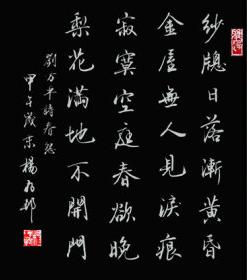 紗牕日落漸黄昏
金屋無人見淚痕
寂寞空庭春欲晚
梨花滿地不開門
劉方平詩春怨
甲午歲末楊